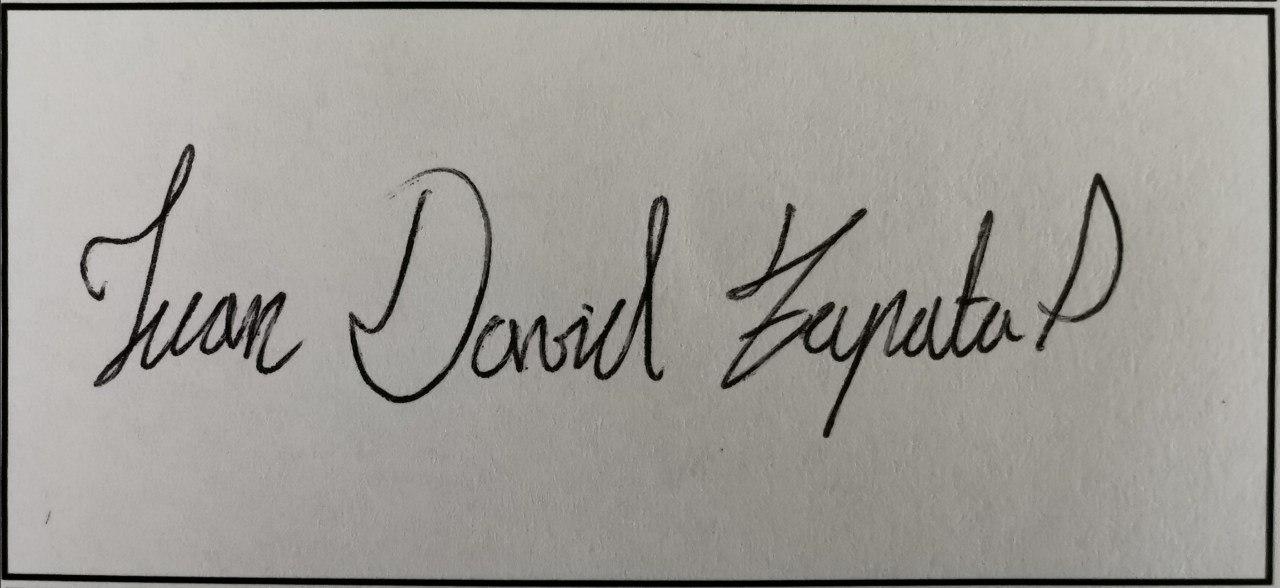 Juan David Zapata P